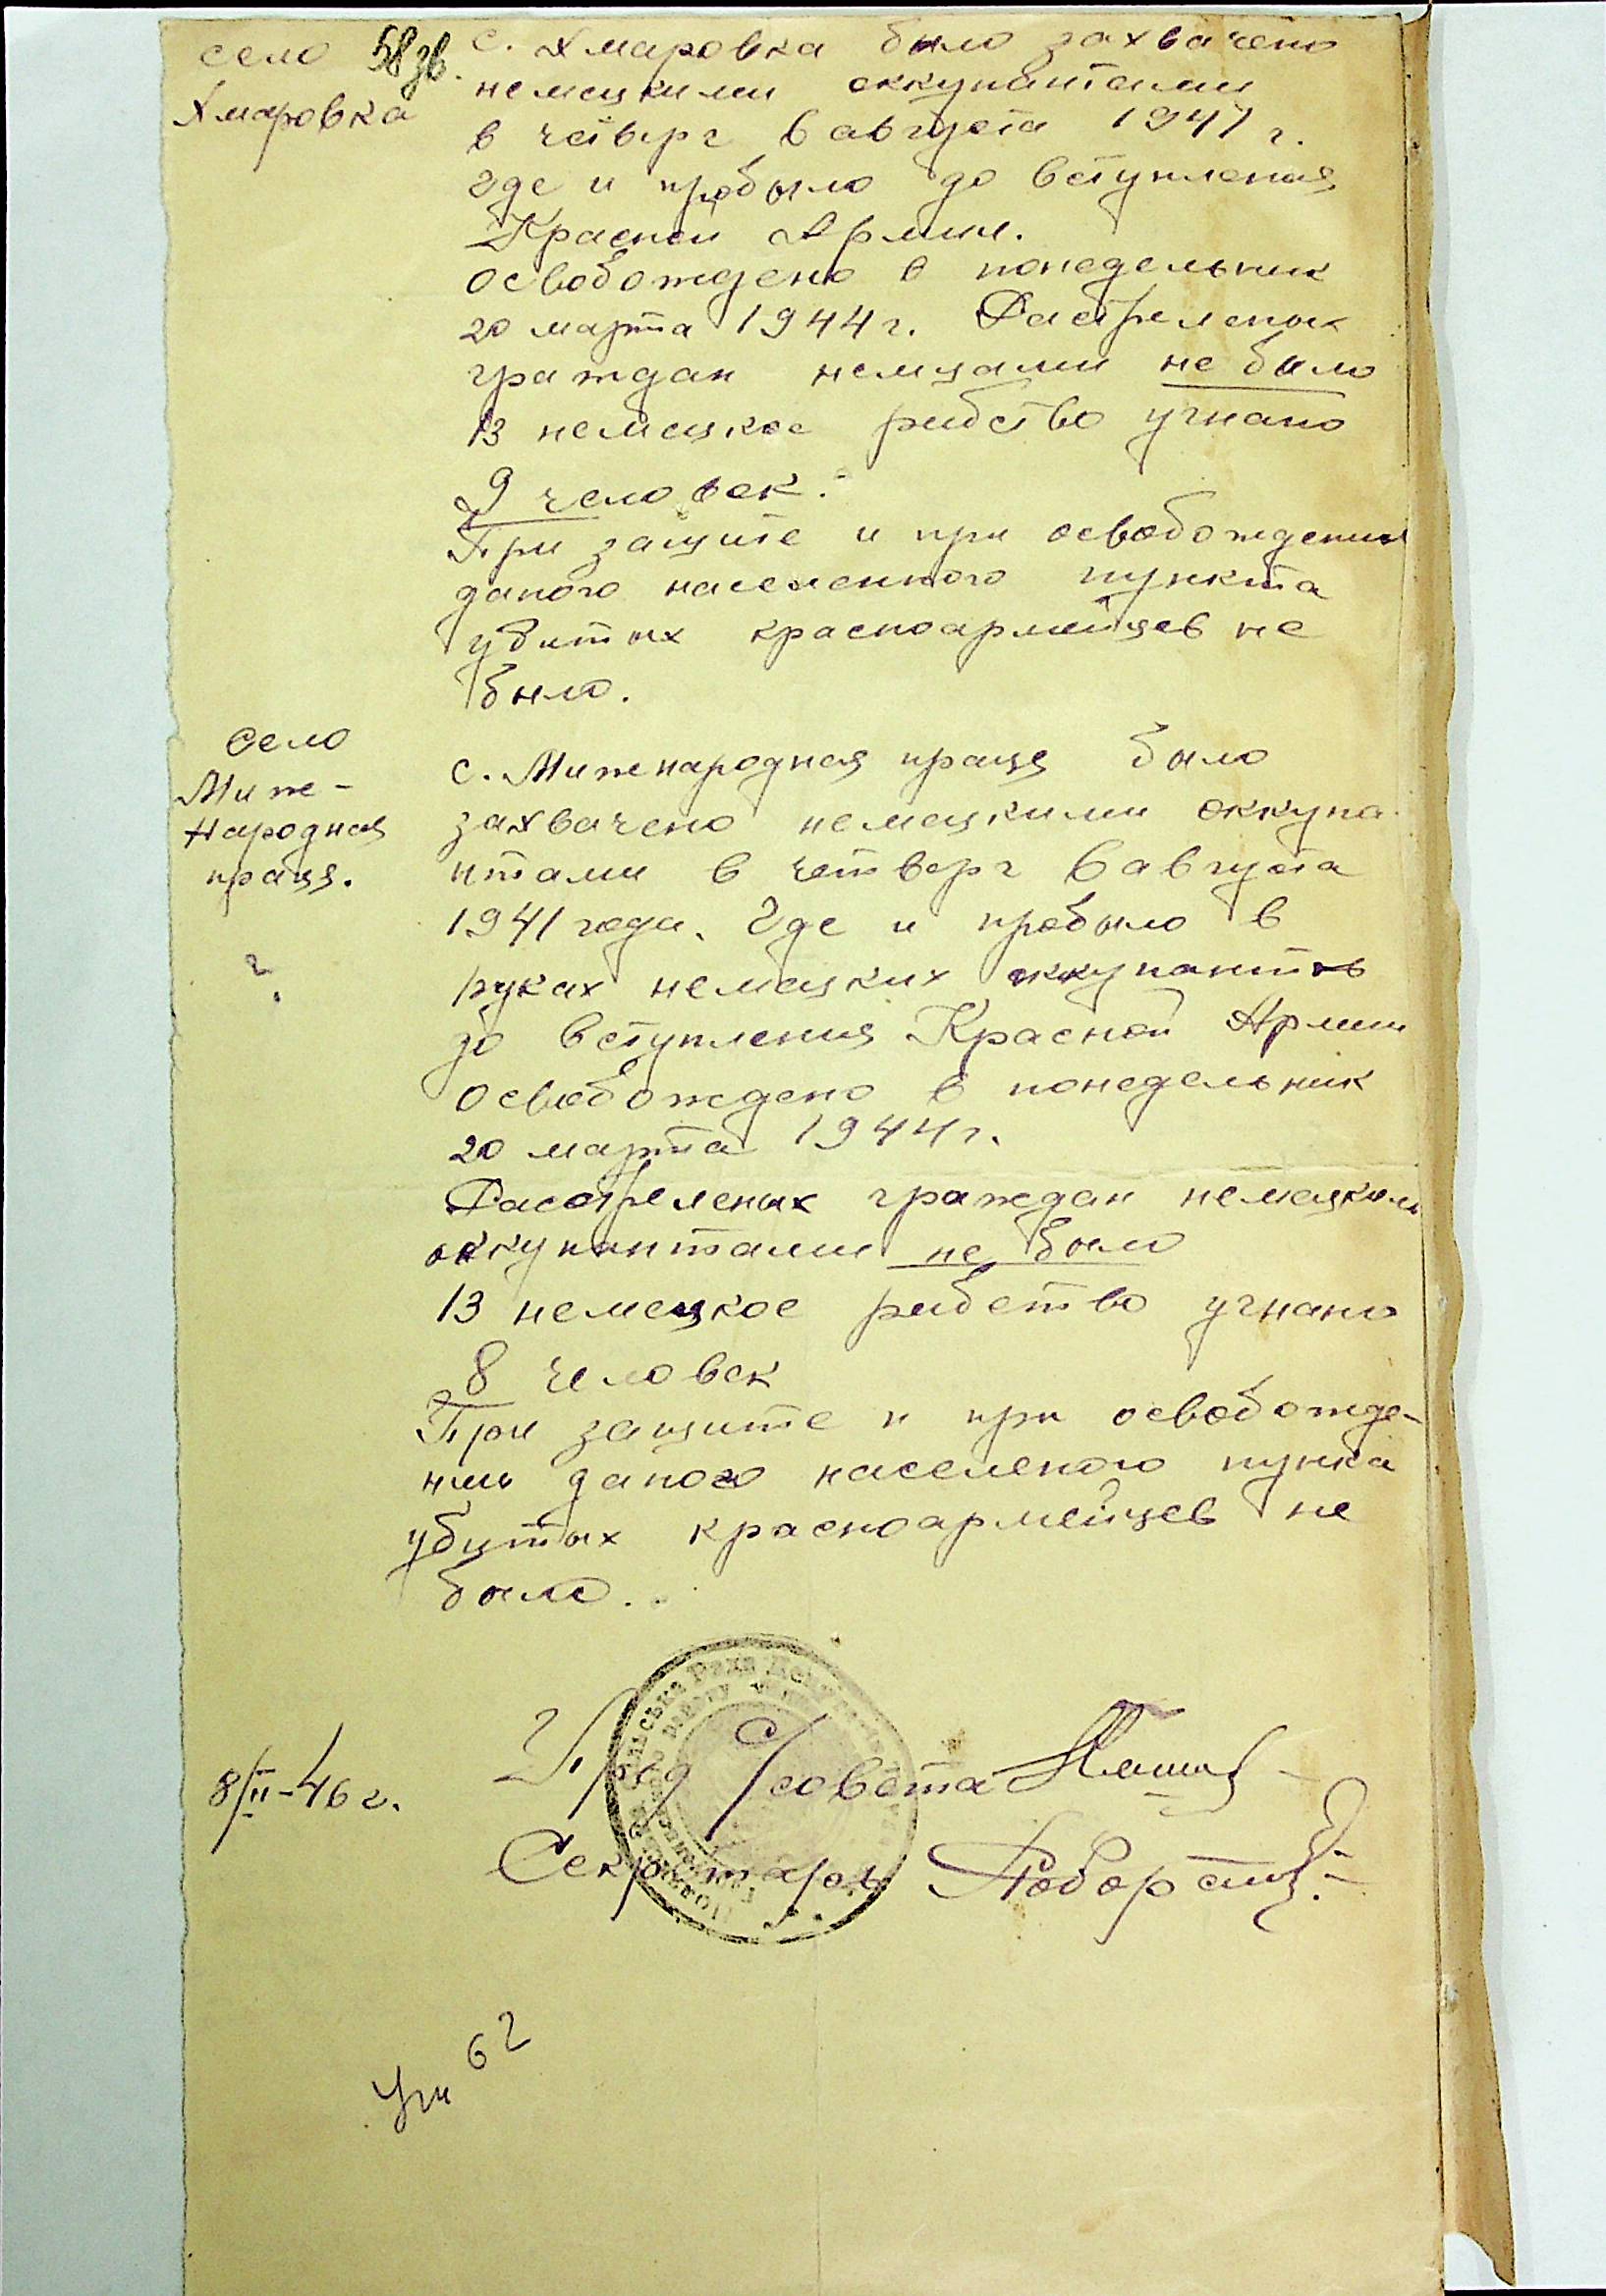 село 58зв.
Хмаровка
с. Хмаровка было захвачено
немецкими оккупантами
в четверг 6 августа 1941 г.
где и пробыло до вступления
Красной Армии.
освобождено в понедельник
20 марта 1944 г. Растреленых
граждан немцами не было
В немецкое рабство угнано
9 человек.
При защите и при освобождении
даного населенного пункта
убитых красноармейцев не
было.
село
Миже-
народная
праця.
?
с. Миженародная праця было
захвачено немецкими оккупа
нтами в четверг 6 августа
1941 года. Где и пробыло в
руках немецких оккупантов
до вступления Красной Армии
освобождено в понедельник
20 марта 1944 г.
Расстреленых граждан немецкими
оккупантами не было
В немецкое рабство угнано
8 человек
При защите и при освобожде-
нии даного населеного пунка
убитых красноармейцев не
было.
Пред С/совета
8/II-46 г.
Секретарь
Уги 62